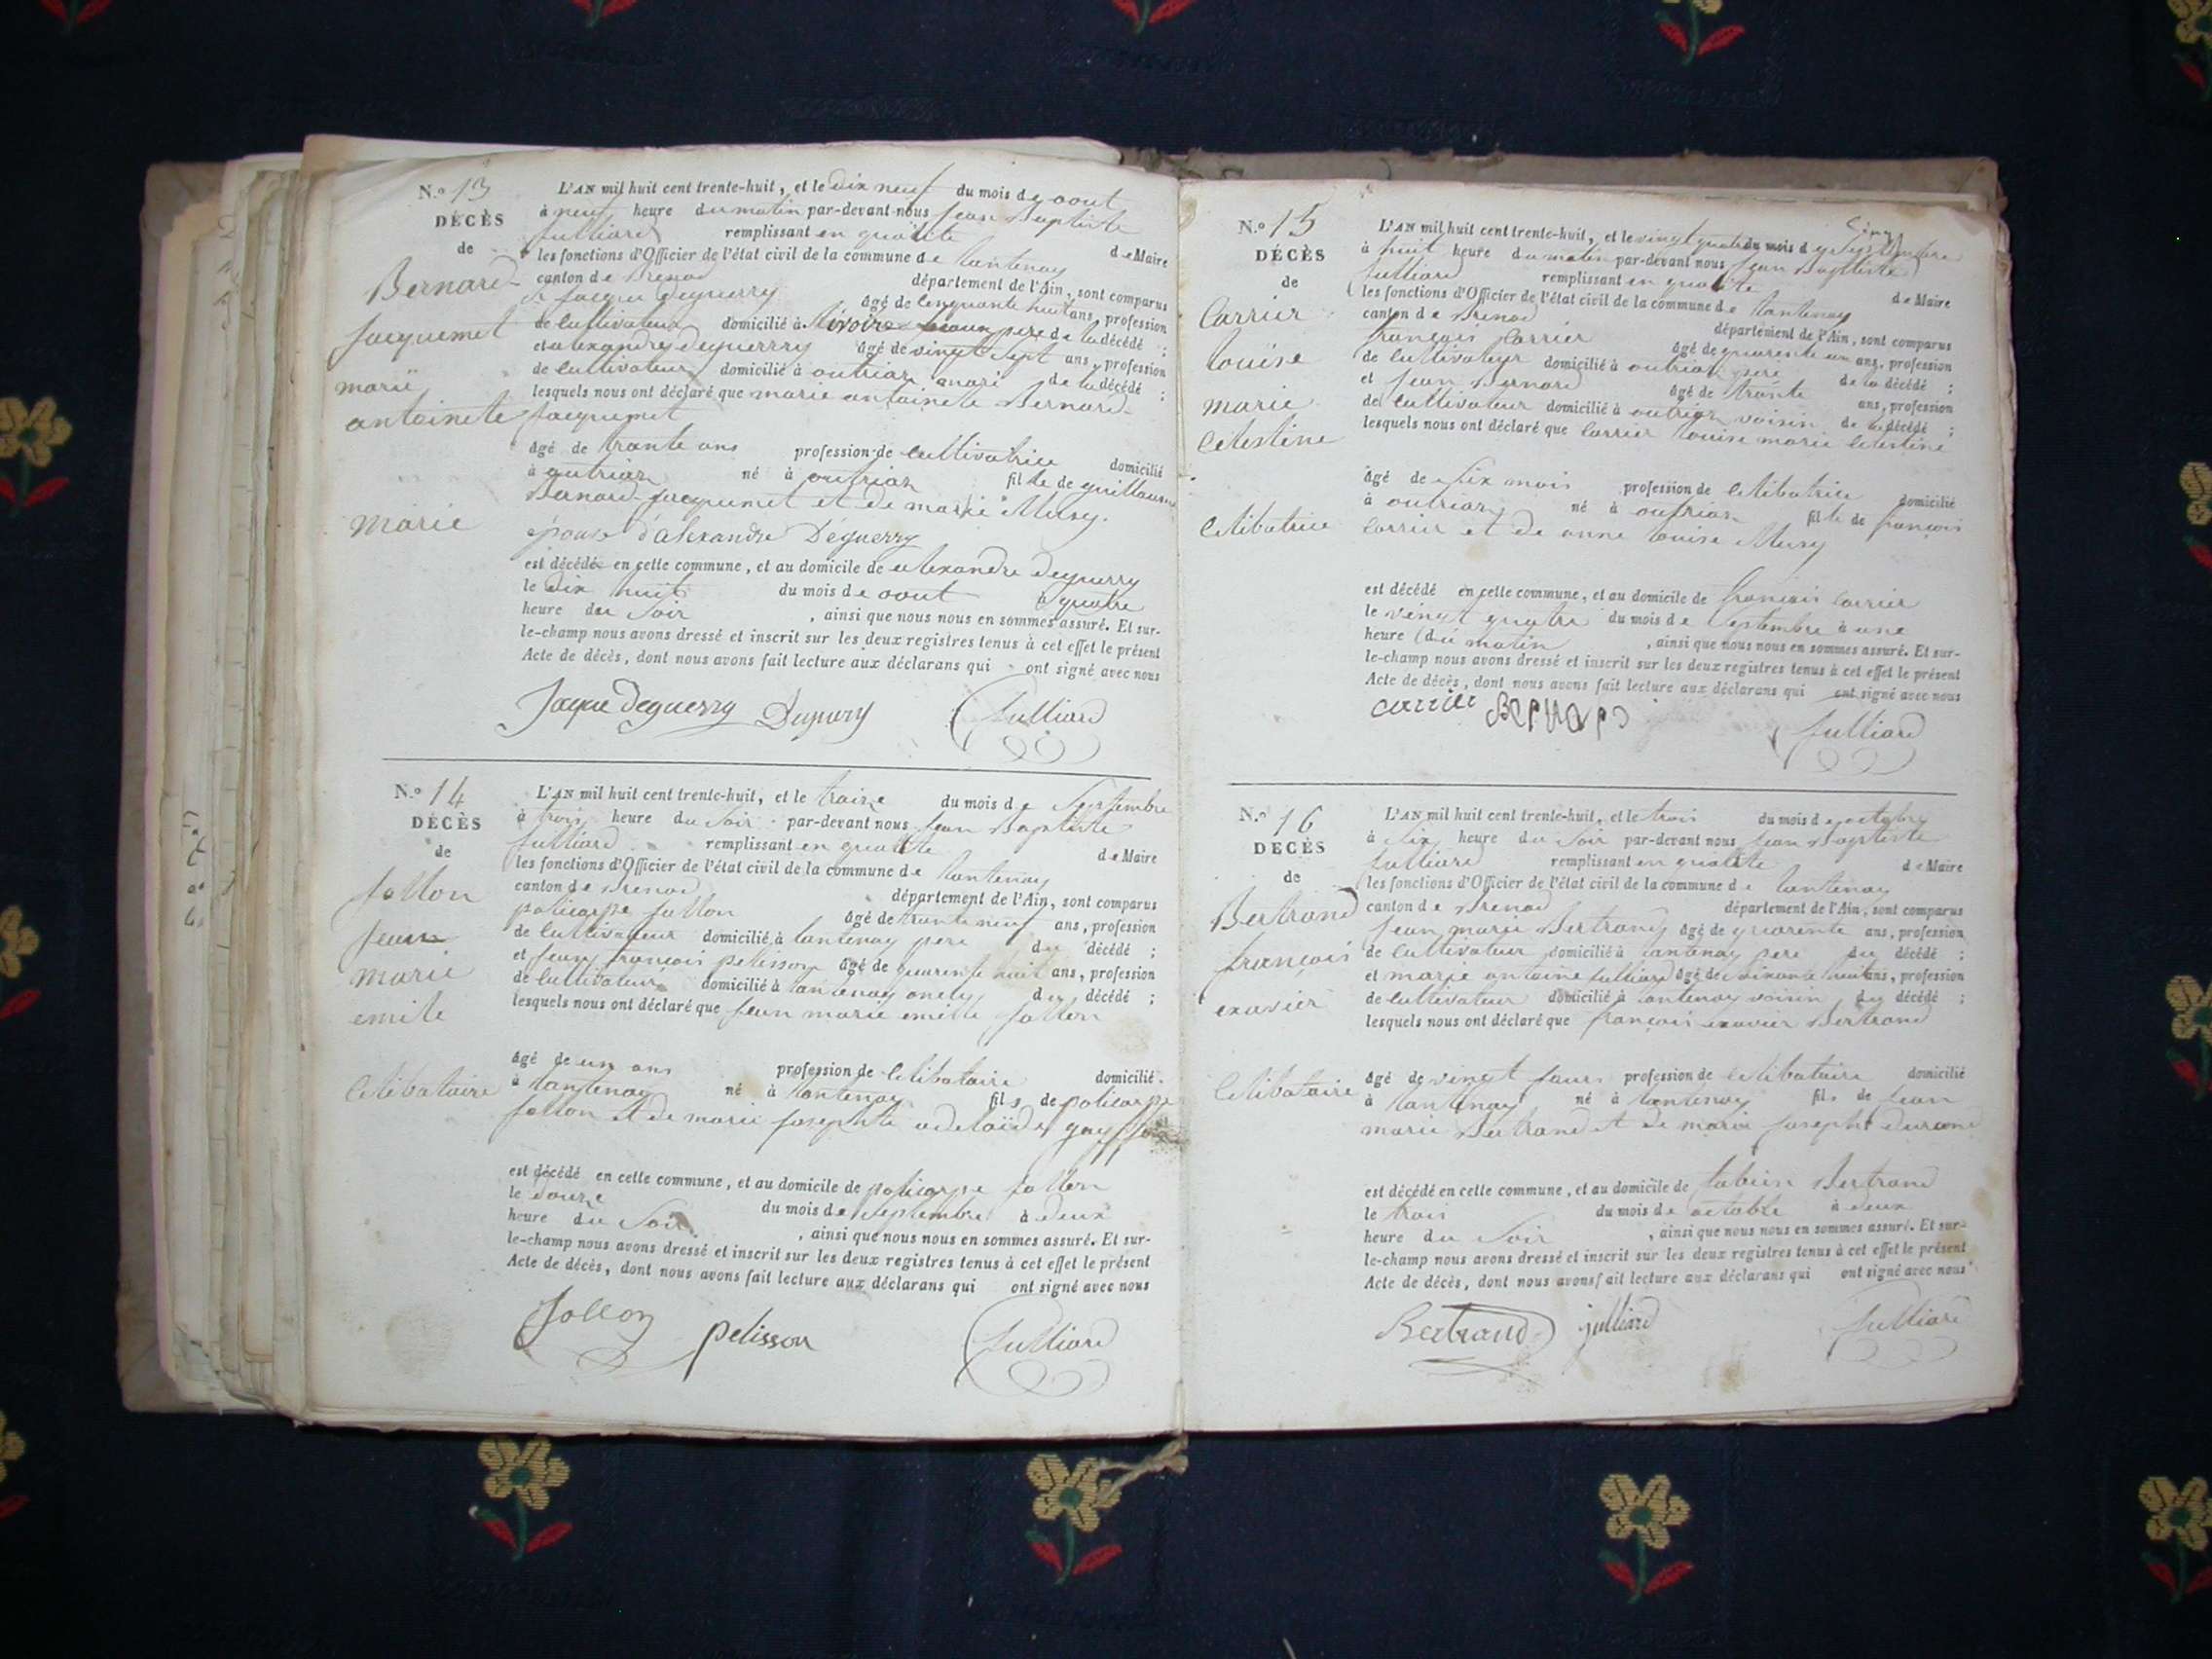 N.º 13
DÉCÈS
de
Bernard-
jacquemet
marie
antoinete
marié
L'AN mil huit cent trente-huit, et le dix neuf du mois de aout
à neuf heure du matin par-devant nous jean Baptiste
julliard remplissant en qualité de Maire
les fonctions d'Officier de l'état civil de la commune de lantenay
canton de Brenod département de l'Ain, sont comparus
jacque Deguerry âgé de cinquante huit ans, profession
de cultivateur domicilié à père de la décédé ;
et alexandre deguerry âgé de vingt sept ans, profession
de cultivateur domicilié à outriaz mari de la décédé ;
lesquels nous ont déclaré que marie antoinete Bernard-
jacquemet
âgé de trante ans profession de cultivatrice domicilié
à outriaz né à outriaz fille de guillaume
Bernard-jacquemet et de marie Musy.
épouse d'alexandre Déguerry
est décédé en cette commune, et au domicile de alexandre deguerry
le dix huit du mois de aout à quatre
heure du soir, ainsi que nous nous en sommes assuré. Et sur-
le-champ nous avons dressé et inscrit sur les deux registres tenus à cet effet le présent
Acte de décès, dont nous avons fait lecture aux déclarans qui ont signé avec nous
Jaque Deguerry Deguerry julliard
N.º 14
DÉCÈS
de
jollon
jean
marie
emile
celibataire
L'AN mil huit cent trente-huit, et le traize du mois de Septembre
à trois heure du soir par-devant nous jean Baptiste
julliard remplissant en qualité de Maire
les fonctions d'Officier de l'état civil de la commune de lantenay
canton de Brenod département de l'Ain, sont comparus
policarpe jollon âgé de trante neuf ans, profession
de cultivateur domicilié à lantenay pere du décédé ;
et jean françois pelisson âgé de quarente huit ans, profession
de cultivateur domicilié à lantenay du décédé ;
lesquels nous ont déclaré que jean marie emille jollon
âgé de un ans profession de celibataire domicilié
à lantenay né à lantenay fils de policarpe
jollon et de marie josephte adelaïde
est décédé en cette commune, et au domicile de policarpe jollon
le douze du mois de septembre à deux
heure du soir, ainsi que nous nous en sommes assuré. Et sur-
le-champ nous avons dressé et inscrit sur les deux registres tenus à cet effet le présent
Acte de décès, dont nous avons fait lecture aux déclarans qui ont signé avec nous
Jollon pelisson julliard
N.º 15
DÉCÈS
de
Carrier
louïse
marie
celestine
celibatrice
L'AN mil huit cent trente-huit, et le vingt du mois de Septembre
à huit heure du matin par-devant nous jean Baptiste
julliard remplissant en qualité de Maire
les fonctions d'Officier de l'état civil de la commune de lantenay
canton de Brenod département de l'Ain, sont comparus
françois carrier âgé de quarente un ans, profession
de cultivateur domicilié à outriaz pere de la décédé ;
et jean Bernard âgé de trante ans, profession
de cultivateur domicilié à outriaz voisin de la décédé ;
lesquels nous ont déclaré que carrier louise marie celestine
âgé de six mois profession de celibatrice domicilié
à outriaz né à outriaz fille de françois
carrier et de anne louise Musy
est décédé en cette commune, et au domicile de françois carrier
le vingt quatre du mois de septembre à une
heure du matin, ainsi que nous nous en sommes assuré. Et sur-
le-champ nous avons dressé et inscrit sur les deux registres tenus à cet effet le présent
Acte de décès, dont nous avons fait lecture aux déclarans qui ont signé avec nous
carrier Bernard julliard
N.º 16
DÉCÈS
de
Bertrand
françois
exavier
celibataire
L'AN mil huit cent trente-huit, et le trois du mois de octobre
à six heure du soir par-devant nous jean Baptiste
julliard remplissant en qualité de Maire
les fonctions d'Officier de l'état civil de la commune de lantenay
canton de Brenod département de l'Ain, sont comparus
jean marie Bertrand âgé de quarente ans, profession
de cultivateur domicilié à lantenay pere du décédé ;
et marie antoine julliard âgé de soixante huit ans, profession
de cultivateur domicilié à lantenay voisin du décédé ;
lesquels nous ont déclaré que françois exavier Bertrand
âgé de vingt jours profession de celibataire domicilié
à lantenay né à lantenay fils de jean
marie Bertrand et de marie josephte durand
est décédé en cette commune, et au domicile de Bertrand
le trois du mois de octobre à deux
heure du soir, ainsi que nous nous en sommes assuré. Et sur-
le-champ nous avons dressé et inscrit sur les deux registres tenus à cet effet le présent
Acte de décès, dont nous avons fait lecture aux déclarans qui ont signé avec nous
Bertrand julliard julliard